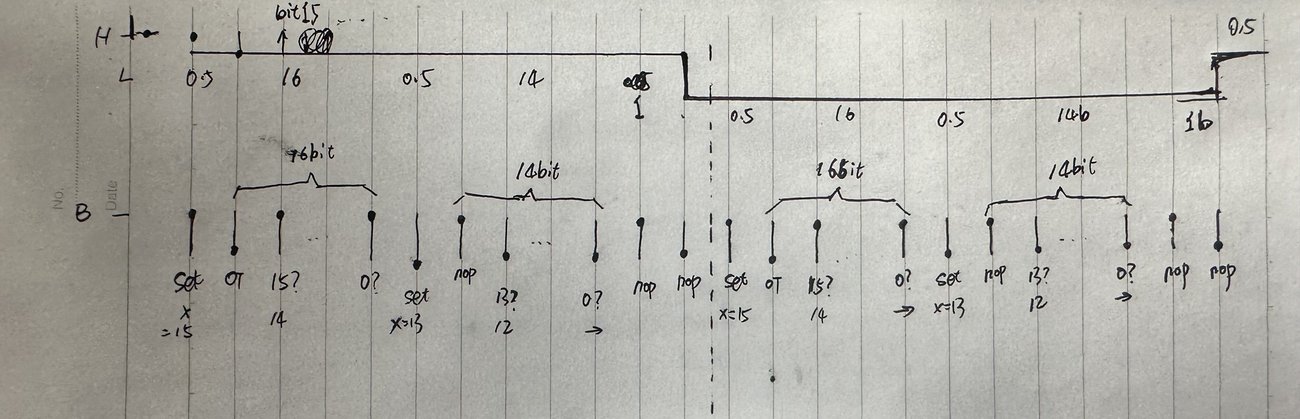 bit15
H
0.5
L 0.5 16 0.5 14 1 0.5 16 0.5 14b 1b
16bit 14bit 16bit 14bit
No.
Date
B
set OT 15? 0? set nop 13? 0? nop nop set OT 15? 0? set nop 13? 0? nop nop
x =15 14 x=13 12 → x=15 14 → x=13 12 →